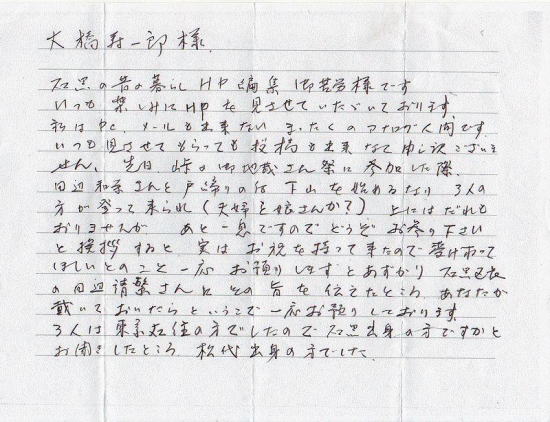 大橋寿一郎様
石黒の昔の暮らしHP編集御苦労様です
いつも楽しみにHpを見させていただいております。
私はPc、メールも出来ないまったくのアナログ人間です。
いつも見させてもらっても投稿も出来なくて申し訳ございま
せん、先日、峠の御地蔵さん祭に参加した際、
田辺和栄さんと戸締りの後下山を始めるなり3人の
方が登って来られ(夫婦と娘さんか?)上にはだれも
おりませんが あと一息ですのでどうぞお参り下さい
と挨拶すると実はお祝を持って来たので受け取って
ほしいとのこと一応お預りしますとあずかり石黒区長
の田辺 さんにその旨を伝えたところ、あなたが
戴いておいたらということで一応お預りしております。
3人は東京在住の方でしたので石黒出身の方ですかと
お聞きしたところ 松代出身の方でした。